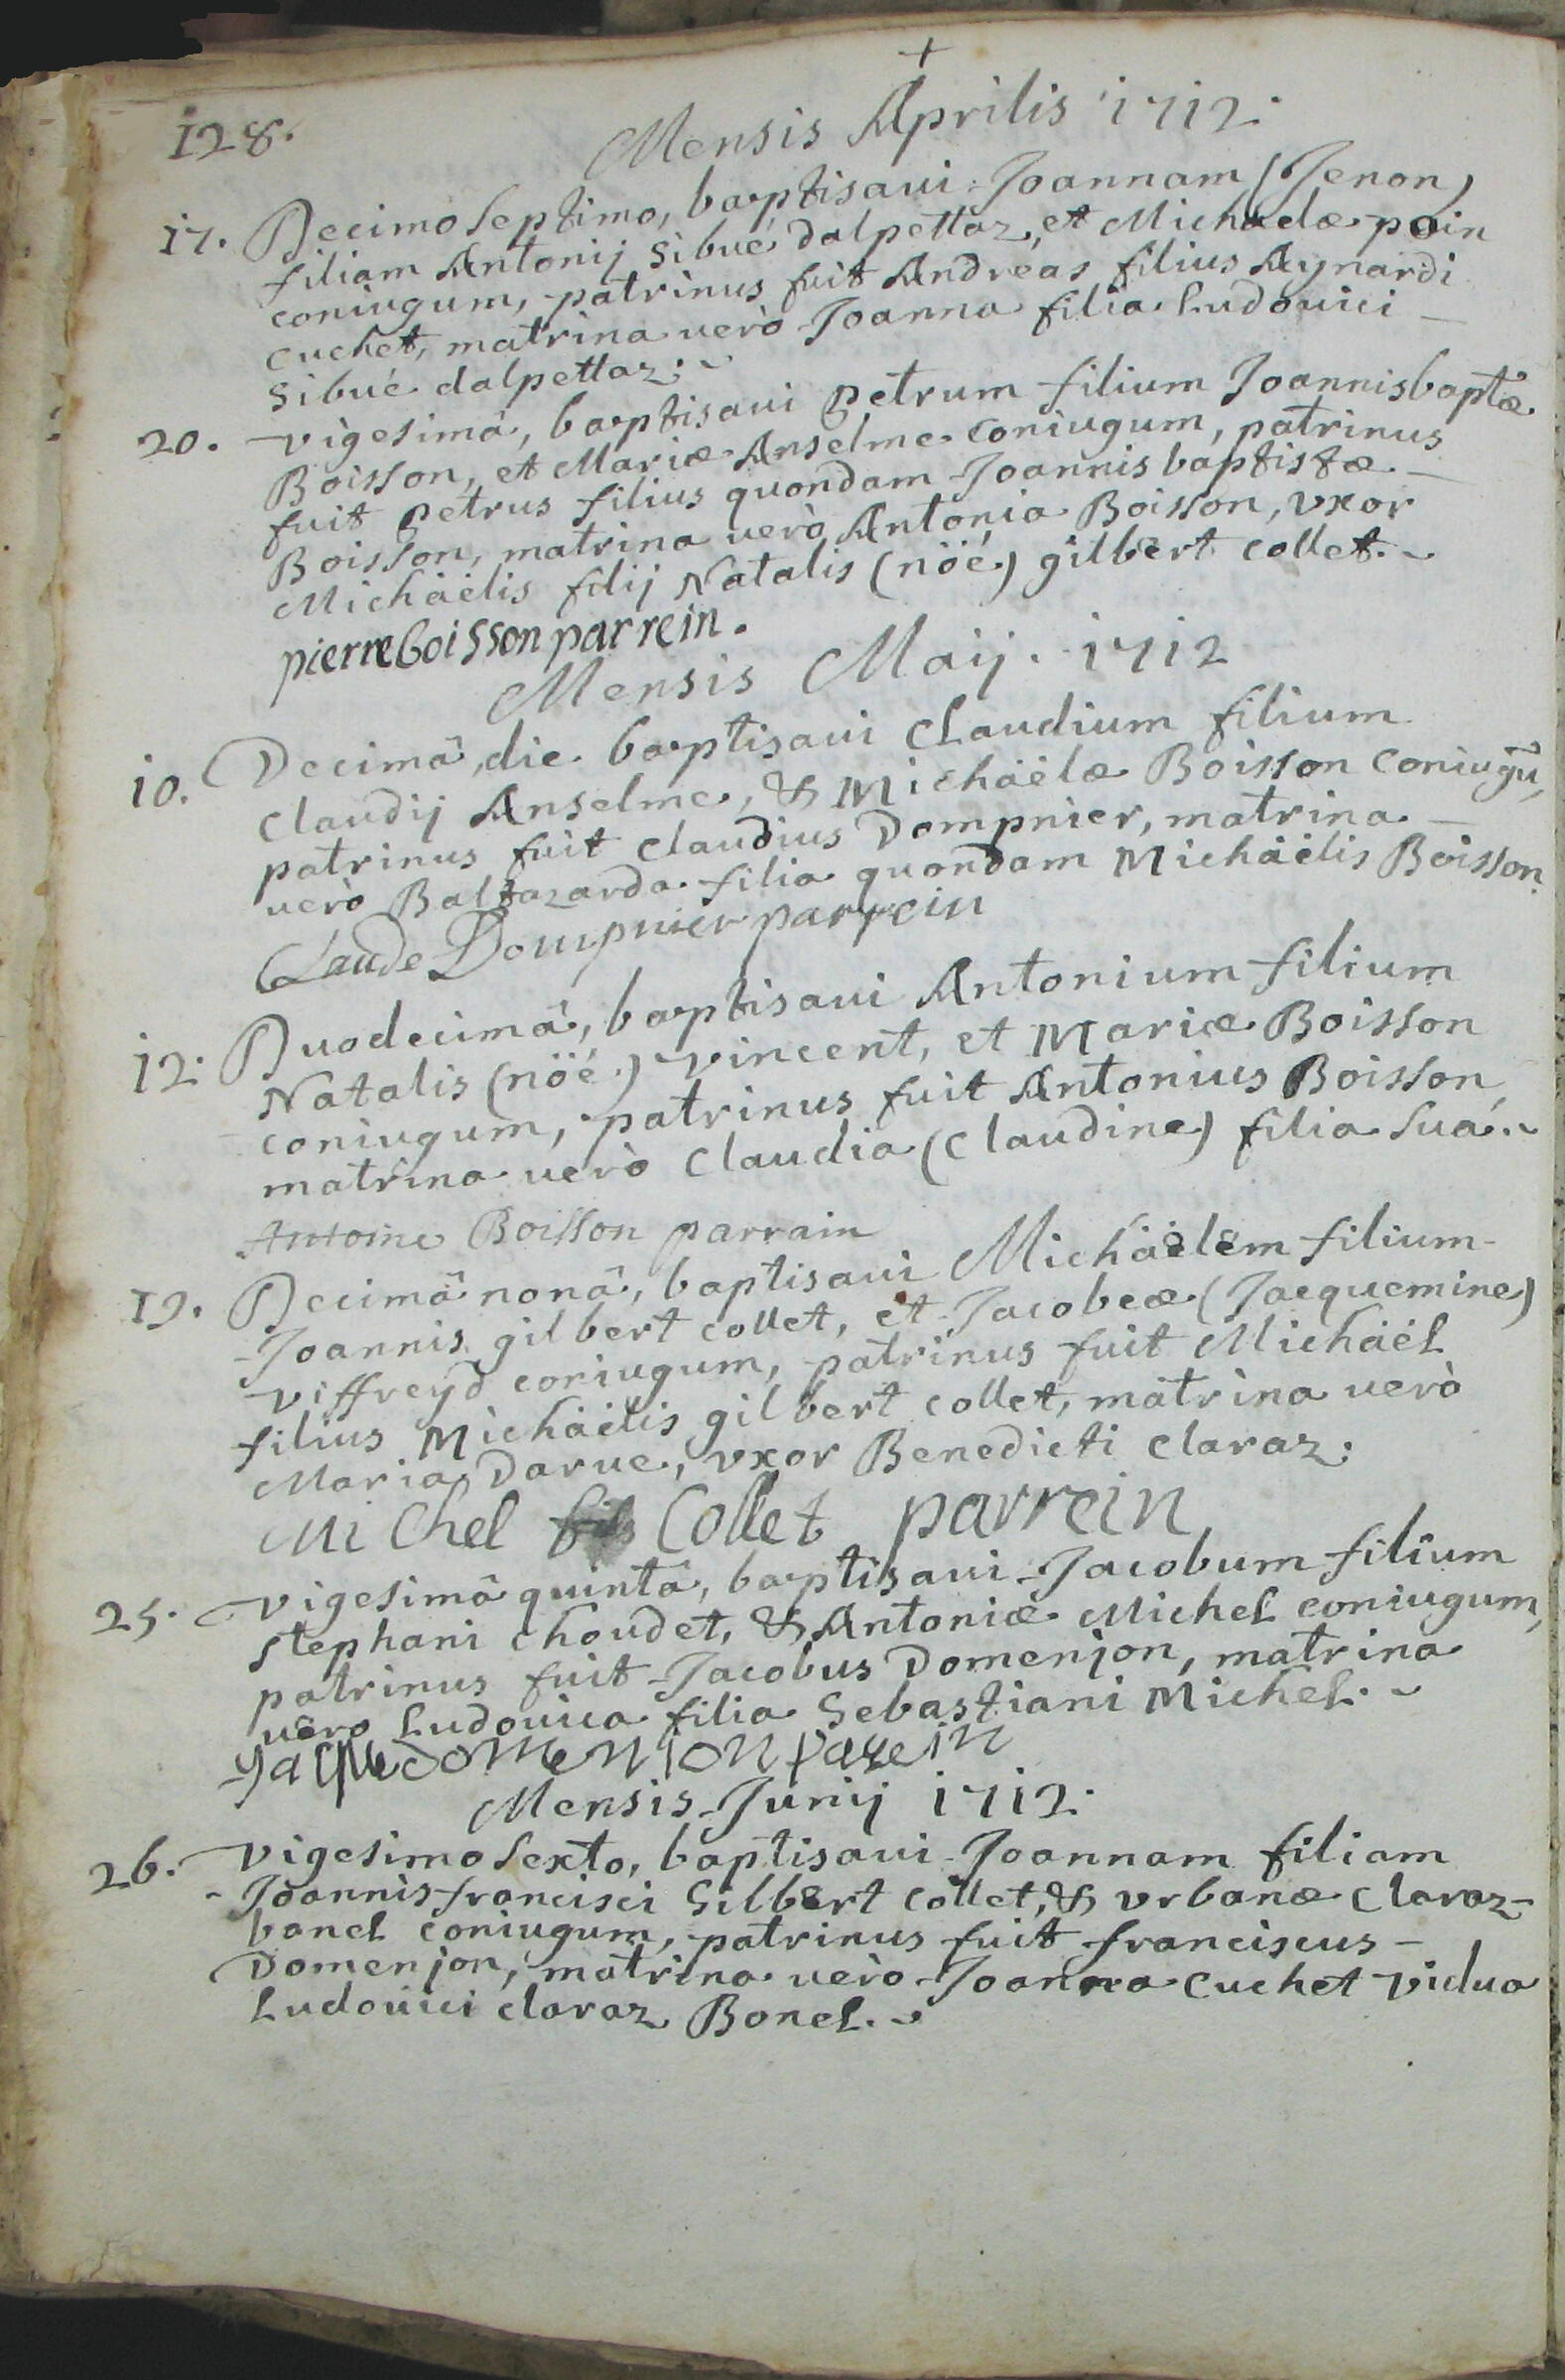 +
128.
Mensis Aprilis 1712.
17. Decimo septimo, baptisaui Joannam (Jenon)
filiam Antonij Sibué dalpettaz, et Michaelæ poin
coniugum, patrinus fuit Andreas filius Aynardi
cuchet, matrina uerò Joanna filia Ludouici
Sibué dalpettaz.
20. vigesimâ, baptisaui petrum filium Joannisbaptæ
Boisson, et Mariæ Anselme coniugum, patrinus
fuit petrus filius quondam Joannis baptistæ
Boisson, matrina uerò Antonia Boisson, vxor
Michäelis filij Natalis (nöé) gilbert collet.
pierre boisson parrein.
Mensis Maij. 1712
10. Decimâ, die baptisaui Claudium filium
Claudij Anselme, & Michäelæ Boisson coniugũ,
patrinus fuit claudius Dompnier, matrina
uerò Baltazarda filia quondam Michäelis Boisson.
Claude Dompnier parrein
12. Duodecimâ, baptisaui Antonium filium
Natalis (nöé) vincent, et Mariæ Boisson
coniugum, patrinus fuit Antonius Boisson,
matrina uerò Claudia (Claudine) filia sua.
Antoine Boisson parrain
19. Decimâ nonâ, baptisaui Michäelem filium
Joannis gilbert collet, et Jacobeæ (Jacquemine)
viffreyd coniugum, patrinus fuit Michäel
filius Michäelis gilbert collet, matrina uerò
Maria Darue, vxor Benedicti claraz.
Michel fils Collet parrein
25. vigesimâ quintâ, baptisaui Jacobum filium
stephani choudet, & Antoniæ Michel coniugum,
patrinus fuit Jacobus Domenjon, matrina
uero Ludouica filia Sebastiani Michel.
Jaque domenion parein
Mensis Junij 1712.
26. vigesimo sexto, baptisaui Joannam filiam
Joannisfrancisci Gilbert collet, & vrbanæ claraz-
bonel coniugum, patrinus fuit franciscus
Domenjon, matrina uerò Joanna cuchet vidua
Ludouici claraz Bonel.